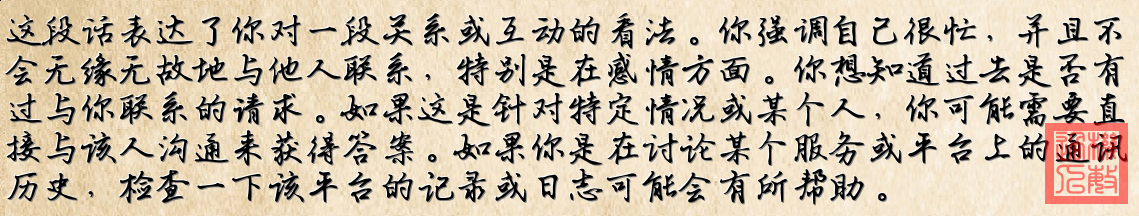 这段话表达了你对一段关系或互动的看法。你强调自己很忙，并且不
会无缘无故地与他人联系，特别是在感情方面。你想知道过去是否有
过与你联系的请求。如果这是针对特定情况或某个人，你可能需要直
接与该人沟通来获得答案。如果你是在讨论某个服务或平台上的通讯
历史，检查一下该平台的记录或日志可能会有所帮助。